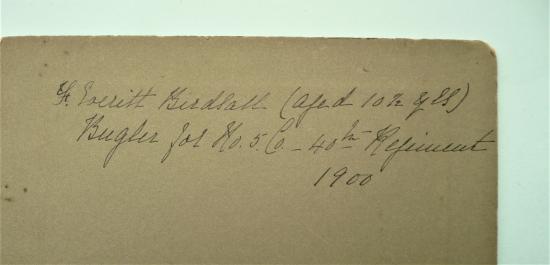 H. Everitt Birdsall (aged 10½ yrs)
Bugler for No. 5. Co. – 40th Regiment
1900